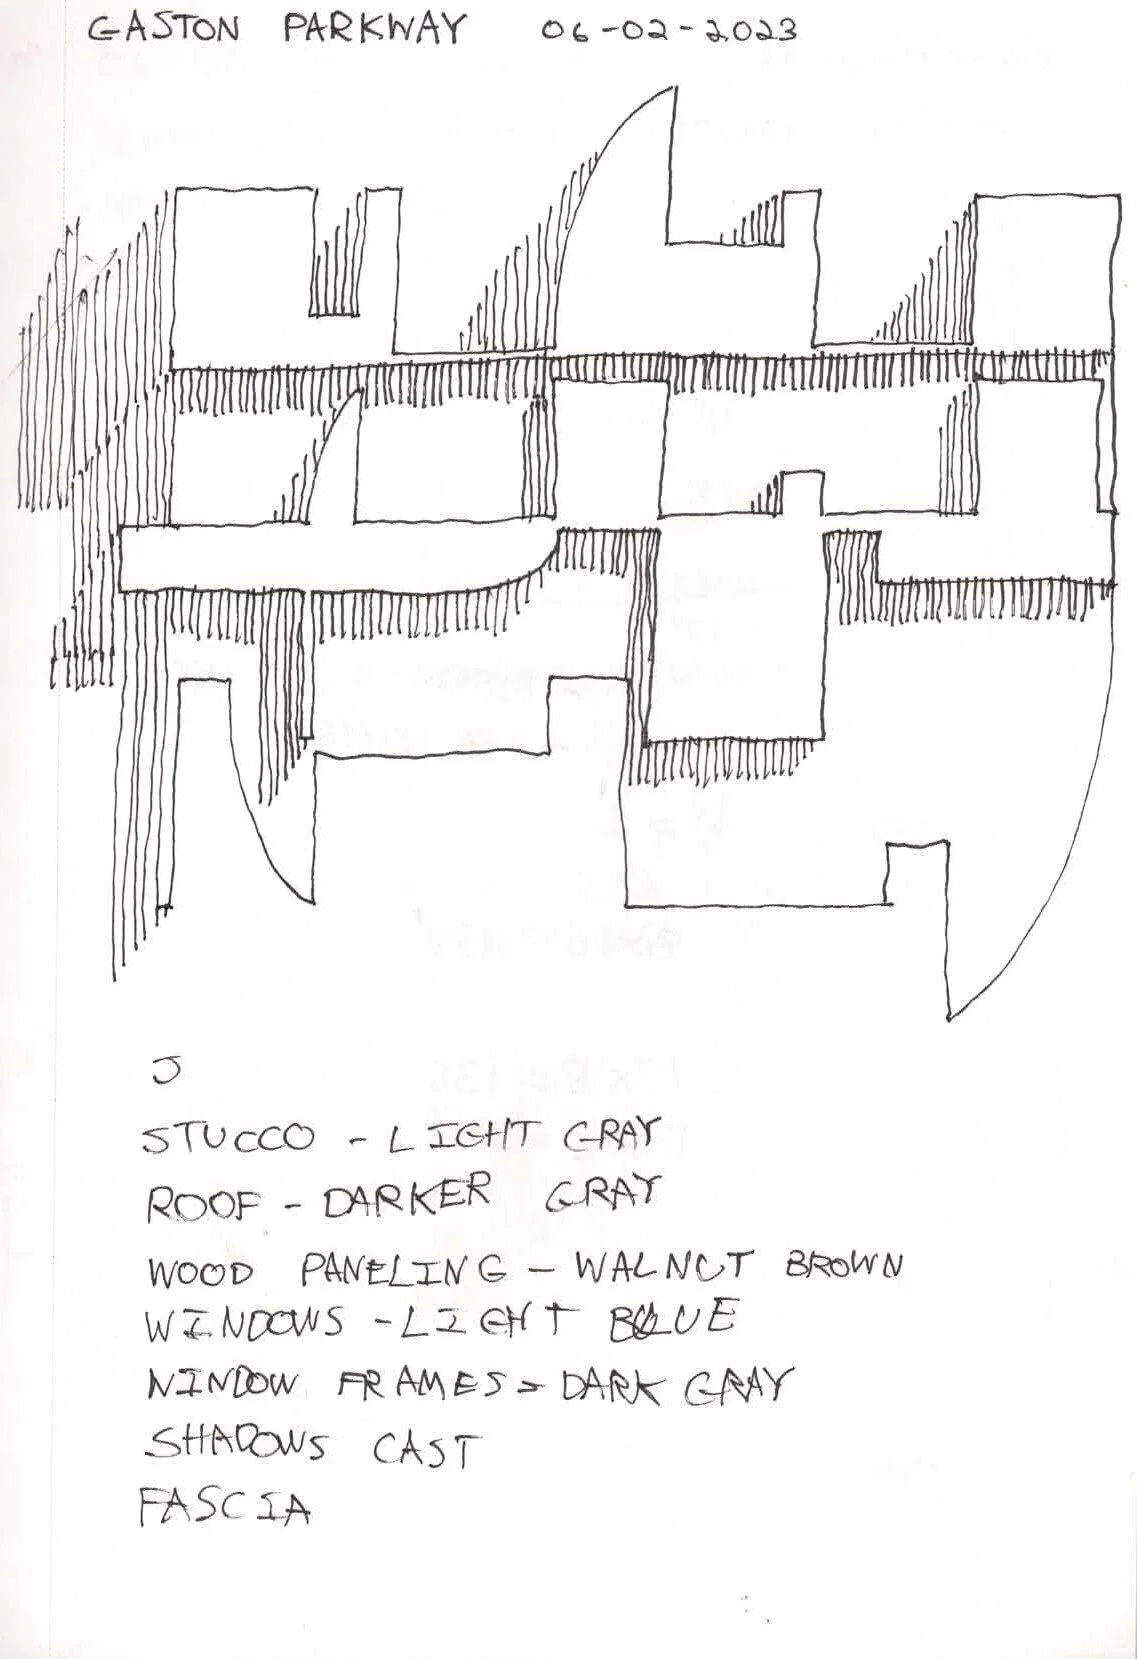 GASTON PARKWAY 06-02-2023
J
STUCCO - LIGHT GRAY
ROOF - DARKER GRAY
WOOD PANELING - WALNUT BROWN
WINDOWS - LIGHT BLUE
WINDOW FRAMES = DARK GRAY
SHADOWS CAST
FASCIA